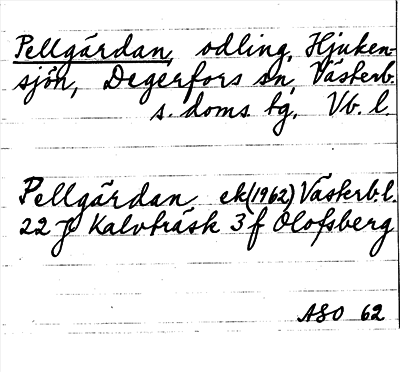 Pellgärdan, odling, Hjuken-
sjön, Degerfors sn, Västerb.
s. doms. tg, Vb. l.
Pellgärdan ek(1962) Västerb.l.
22 J Kalvträsk 3 f Olofsberg
ASO 62